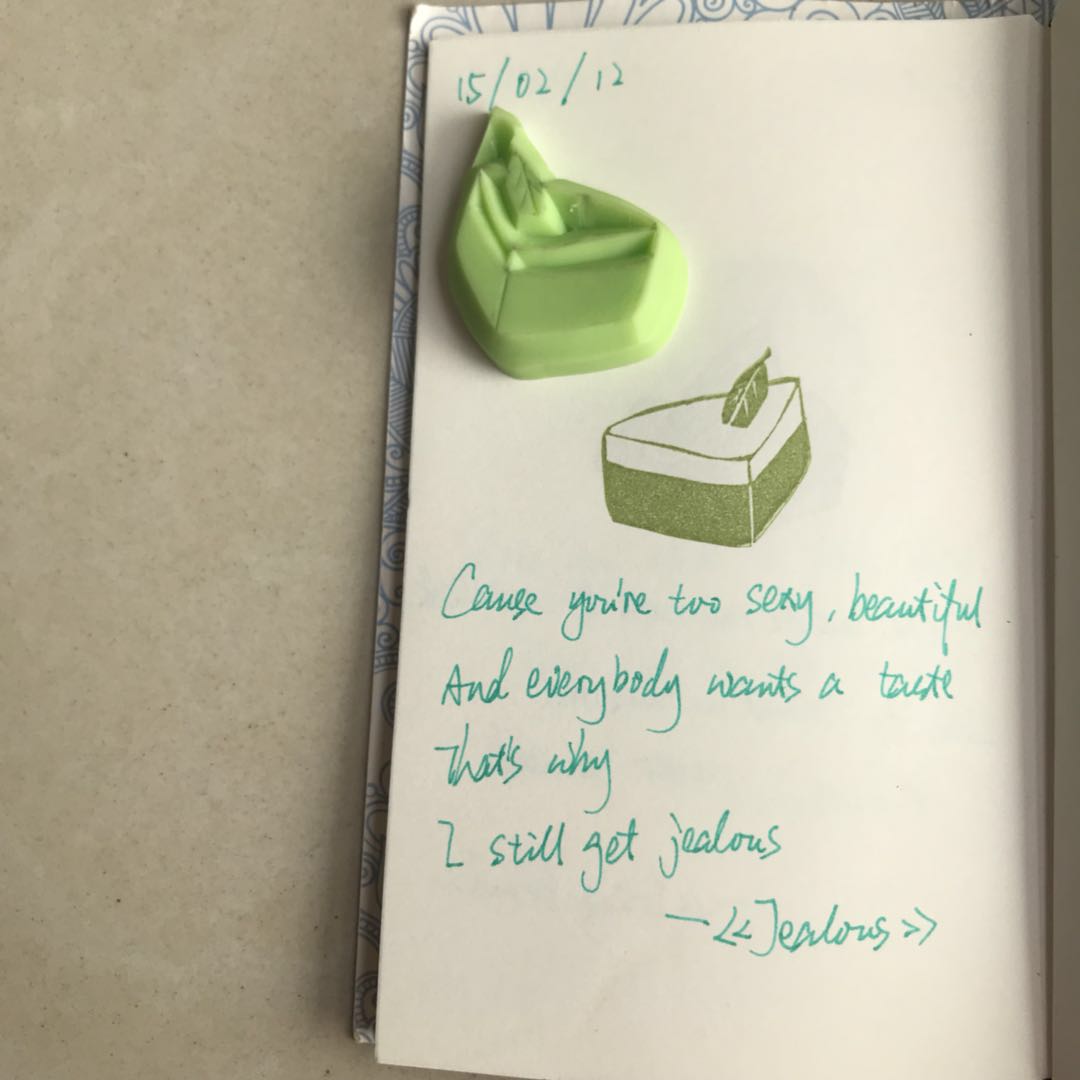 15/02/12
Cause you're too sexy, beautiful
And everybody wants a taste
That's why
I still get jealous
—<<Jealous>>